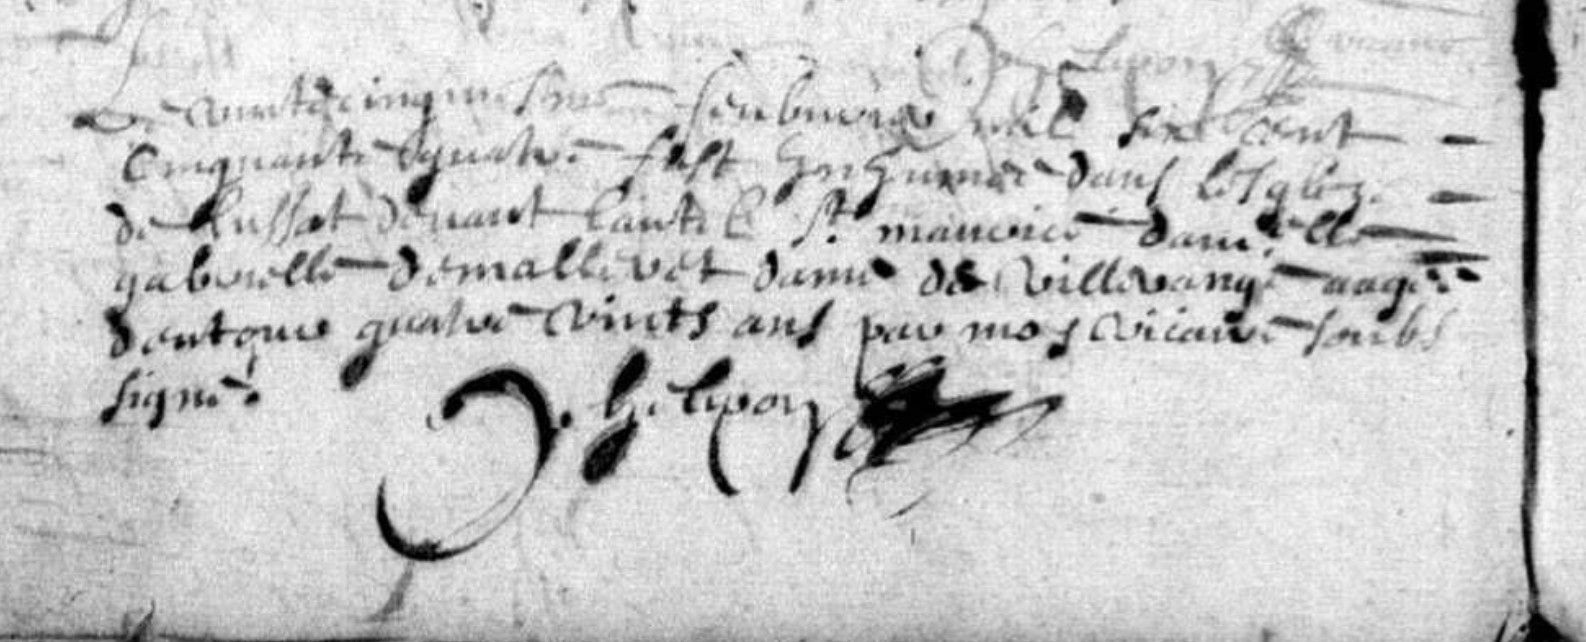 Le vint & cinquiesme feubvrier mil six cent
Cinquante & quatre fust Inhumée dans leglize
de Lussat devant lautel St mauvrice damelle
gabrielle demallevet dame de villevange aagée
dentour quatre vints ans par moy vicaire soubs
signé.